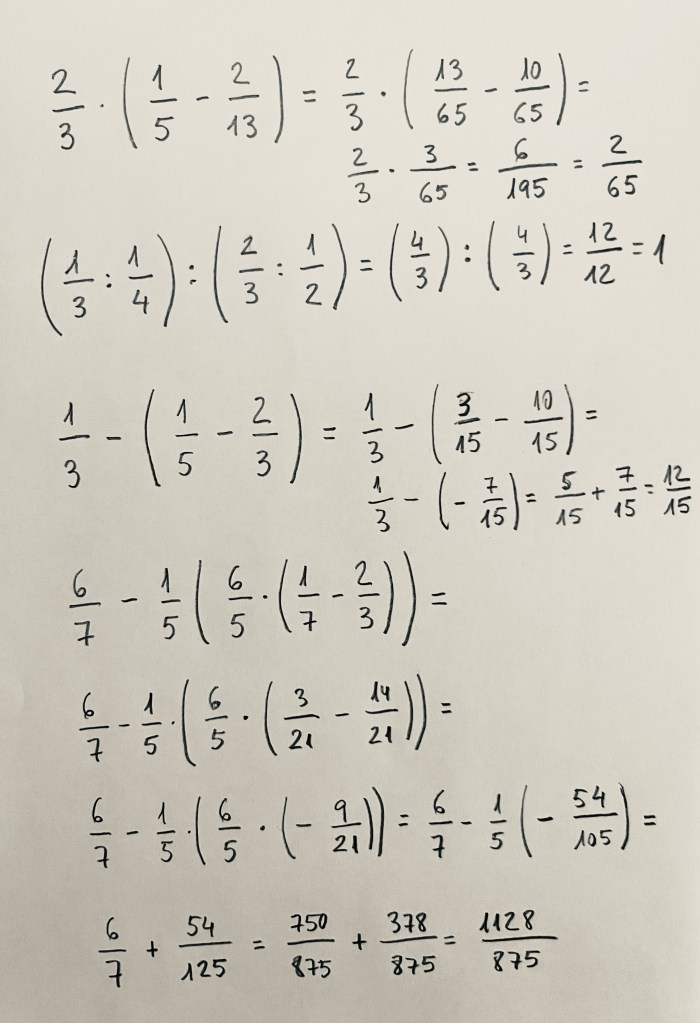 2/3 · (1/5 - 2/13) = 2/3 · (13/65 - 10/65) =
2/3 · 3/65 = 6/195 = 2/65
(1/3 : 1/4) : (2/3 : 1/2) = (4/3) : (4/3) = 12/12 = 1
1/3 - (1/5 - 2/3) = 1/3 - (3/15 - 10/15) =
1/3 - (- 7/15) = 5/15 + 7/15 = 12/15
6/7 - 1/5 (6/5 · (1/7 - 2/3)) =
6/7 - 1/5 · (6/5 · (3/21 - 14/21)) =
6/7 - 1/5 · (6/5 · (- 9/21)) = 6/7 - 1/5 (- 54/105) =
6/7 + 54/125 = 750/875 + 378/875 = 1128/875